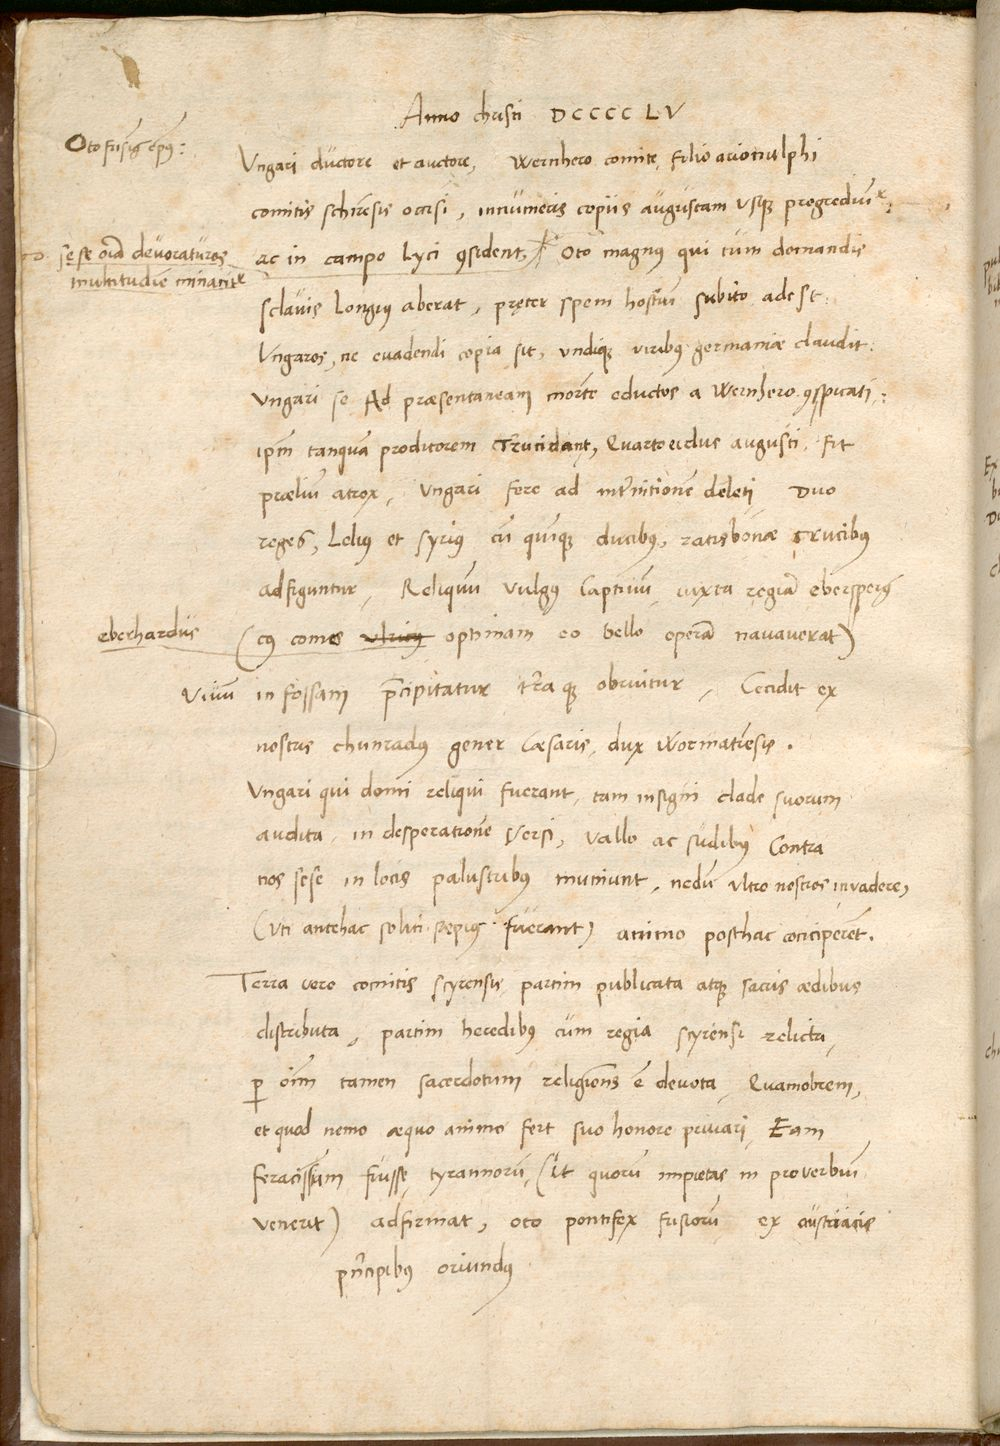 Anno christi DCCCCLV
Oto frisīg epꝰ:
Vngari ductore et auctore, Wernhero comite, filio arionulphi
comitis schirēsis occisi, innumeris copiis augustam usqꝫ progrediūtʳ,
ac in campo Lyci ꝯsident, Oto magnꝰ qui tum domandis
sese oīa devoraturos
multitudīe minantʳ
sclavis Longiꝰ aberat, pręter spem hostiū subito adest:
Vngaros, ne evadendi copia sit, vndiqꝫ viribꝰ germaniæ claudit:
Vngari se Ad præsentaneam mortē eductos a Wernhero ꝯspicati,:
ipm̄ tanquā proditorem Trucidant, Quarto eidus augusti. Fit
præliū atrox, Vngari fere ad intʳnitionē deleti Duo
reges, Leliꝰ et syriꝰ cū quīqꝫ ducibꝰ, ratisbonæ crucibꝰ
adfiguntur, Reliquū vulgꝰ Captiuū, iuxta regiā ebersperg
eberhardus
(cꝰ comes vlricꝰ optimam eo bello operā navaverat)
Viuū in fossam p̄cipitatur tʳraqꝫ obruitur, Cecidit ex
nostris chunradꝰ gener Cæsaris, dux wormatiēsis.
Vngari qui domi reliqui fuerant, tam insigni clade suorum
audita, in desperationē versi, vallo ac sudibꝰ Contra
nos sese in locis palustribus muniunt, nedū vltro nostros invadere,
(vti antehac soliti sæpiꝰ fuerant) animo posthac cōciperēt.
Terra vero comitis scyrensis partim publicata atqꝫ sacris ædibus
distributa, partim heredibꝰ cum regia scyrensi relicta,
ꝑ oīm tamen sacerdotum religionis ē devota, Quamobrem,
et quod nemo æquo animo fert suo honore privari, Eam
feracissimā fuisse tyrannorū, (Vt quorū impietas in proverbiū
venerit) adfirmat, oto pontifex frisiorū ex austriacis
prīcipibus oriundꝰ